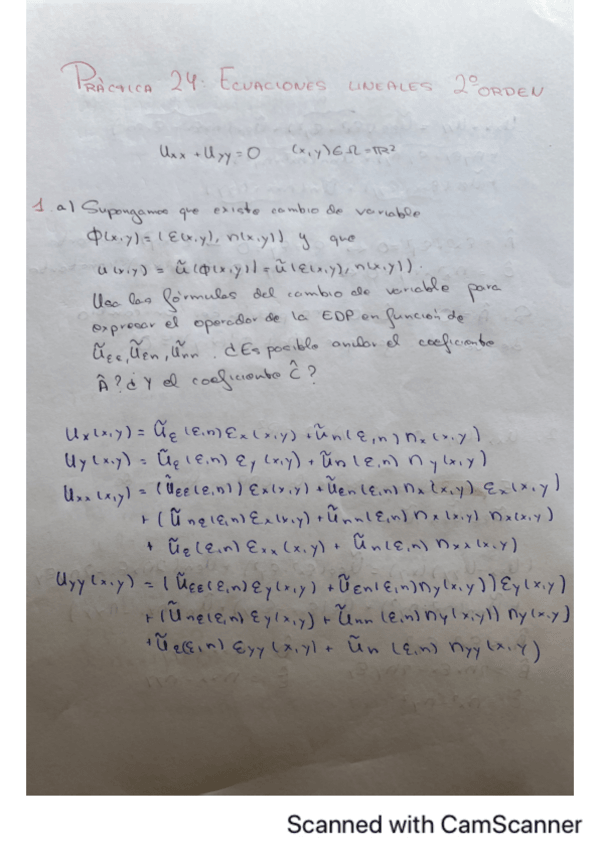 PRÁCTICA 24: ECUACIONES LINEALES 2º ORDEN
Uxx + Uyy = 0 (x,y) ∈ Ω = ℝ²
1 a) Supongamos que existe cambio de variable
Φ(x,y) = (ε(x,y), n(x,y)) y que
u(x,y) = ũ(Φ(x,y)) = ũ(ε(x,y), n(x,y)).
Usa las fórmulas del cambio de variable para
expresar el operador de la EDP en función de
ũεε, ũεn, ũnn. ¿Es posible anular el coeficiente
Â? ¿Y el coeficiente Ĉ?
Ux(x,y) = ũε(ε,n) εx(x,y) + ũn(ε,n) nx(x,y)
Uy(x,y) = ũε(ε,n) εy(x,y) + ũn(ε,n) ny(x,y)
Uxx(x,y) = (ũεε(ε,n)) εx(x,y) + ũεn(ε,n) nx(x,y) εx(x,y)
+ (ũnε(ε,n) εx(x,y) + ũnn(ε,n) nx(x,y) nx(x,y)
+ ũε(ε,n) εxx(x,y) + ũn(ε,n) nxx(x,y)
Uyy(x,y) = (ũεε(ε,n) εy(x,y) + ũεn(ε,n) ny(x,y)) εy(x,y)
+ (ũnε(ε,n) εy(x,y) + ũnn(ε,n) ny(x,y)) ny(x,y)
+ ũε(ε,n) εyy(x,y) + ũn(ε,n) nyy(x,y)
Scanned with CamScanner